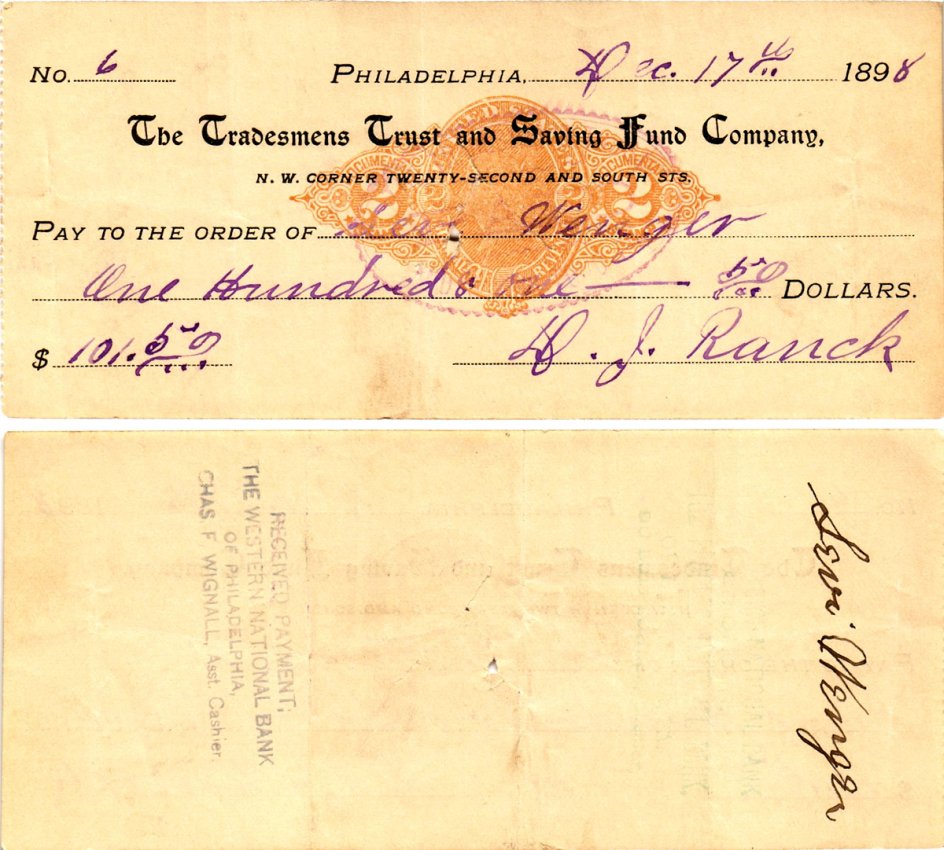 No. 6 PHILADELPHIA, Dec. 17th 1898
The Tradesmens Trust and Saving Fund Company,
N. W. CORNER TWENTY-SECOND AND SOUTH STS.
PAY TO THE ORDER OF Levi Wenger
One Hundred & one — 50/100 DOLLARS.
$ 101.50/100 D. J. Ranck
2 2 2 2
RECEIVED PAYMENT;
THE WESTERN NATIONAL BANK
OF PHILADELPHIA,
CHAS F WIGNALL, Asst. Cashier.
Levi Wenger